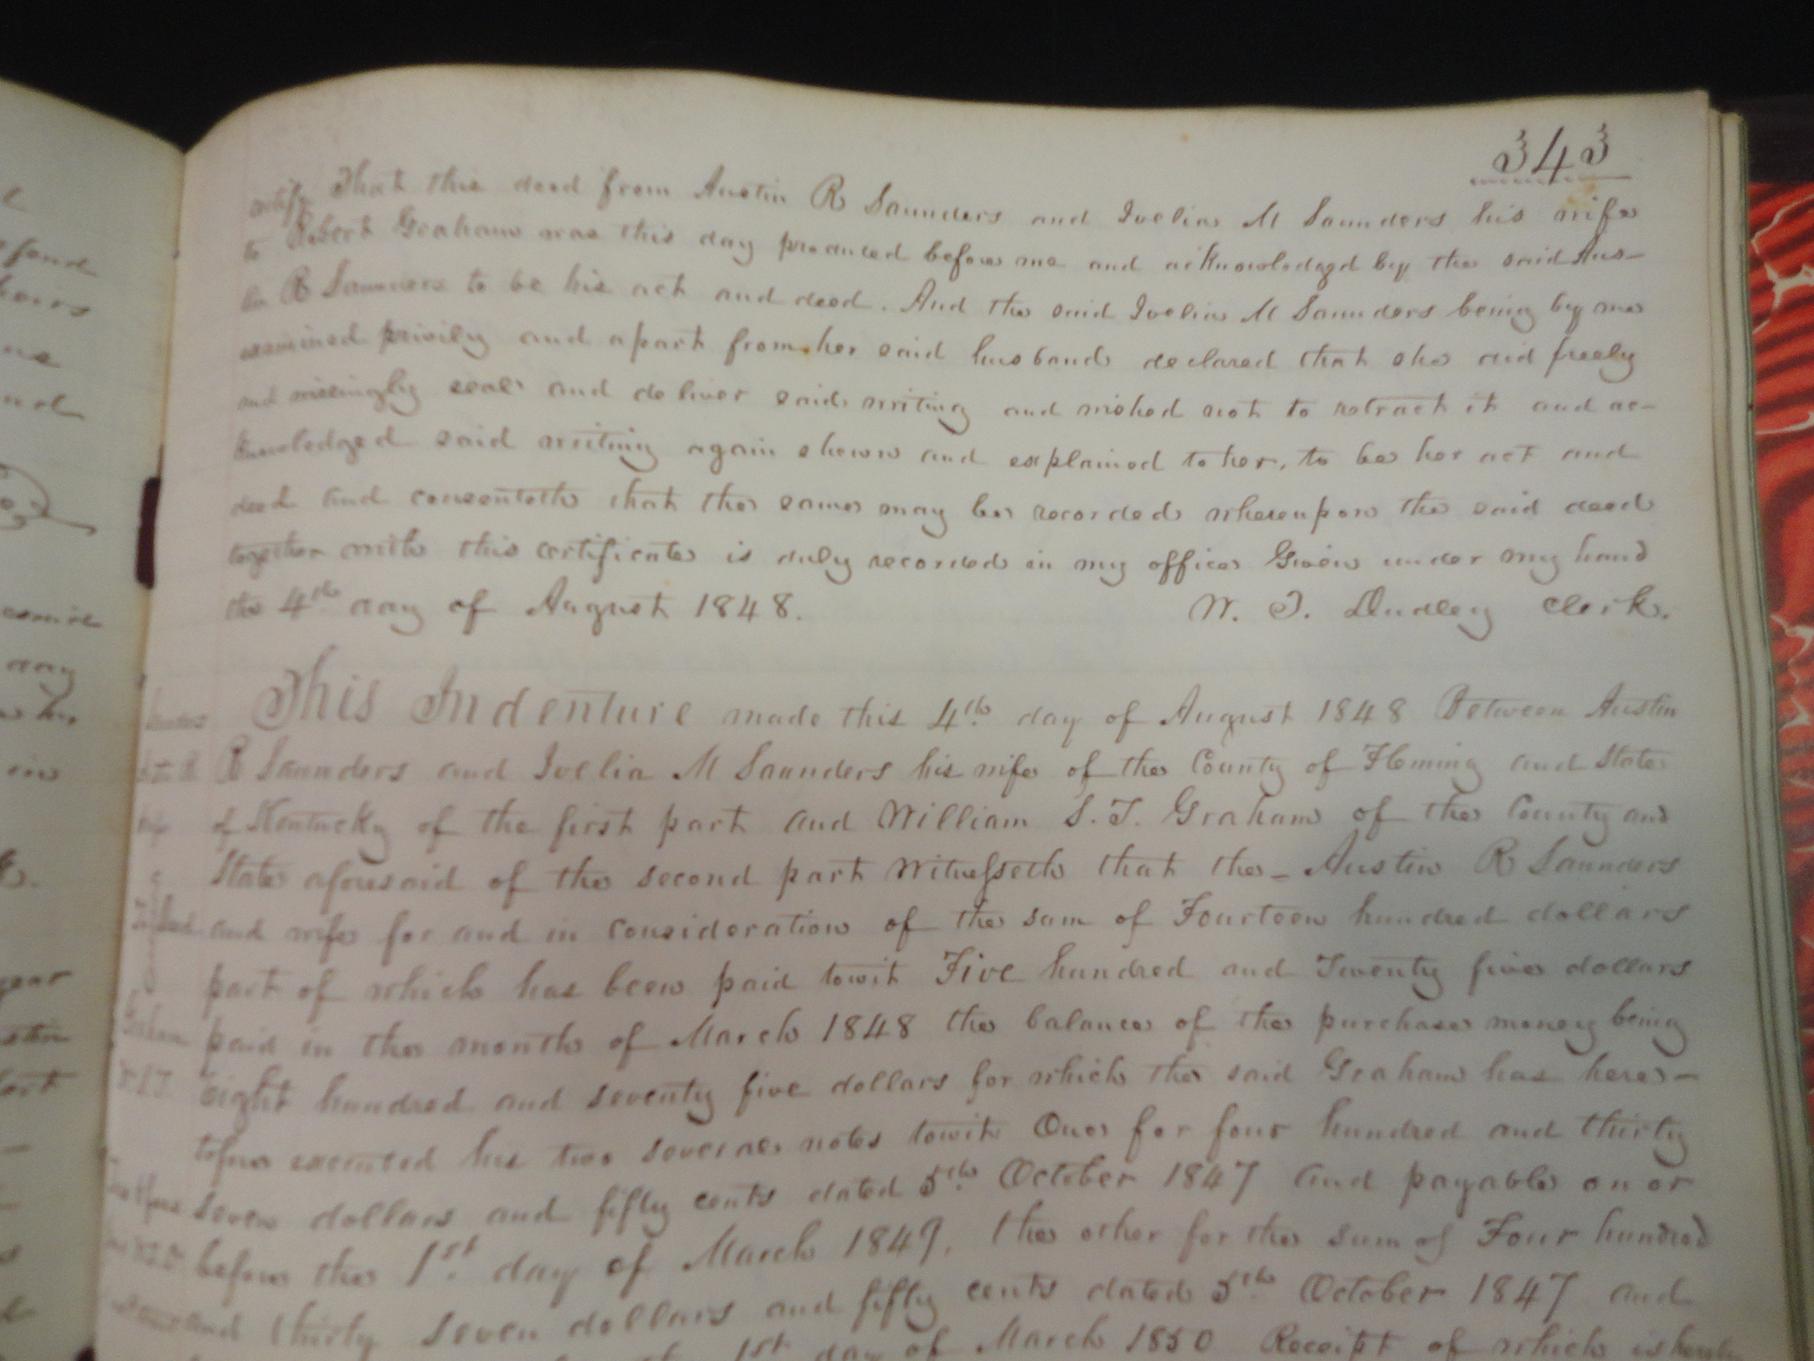 343
certify That this deed from Austin R Saunders and Ivelia M Saunders his wife
to Robert Graham was this day produced before me and acknowledged by the said Aus-
tin R Saunders to be his act and deed. And the said Ivelia M Saunders being by me
examined privily and apart from her said husband declared that she did freely
and willingly seal and deliver said writing and wished not to retract it and ac-
knowledged said writing again shewn and explained to her, to be her act and
deed and consenteth that the same may be recorded whereupon the said deed
together with this certificate is duly recorded in my office Given under my hand
the 4th day of August 1848. W. T. Dudley Clerk.
This Indenture made this 4th day of August 1848 Between Austin
R Saunders and Ivelia M Saunders his wife of the County of Fleming and State
of Kentucky of the first part and William S. T. Graham of the County and
State aforesaid of the second part Witnesseth that the - Austin R Saunders
and wife for and in consideration of the sum of Fourteen hundred dollars
part of which has been paid towit Five hundred and Twenty five dollars
paid in the month of March 1848 the balance of the purchase money being
eight hundred and seventy five dollars for which the said Graham has here-
tofore executed his two several notes towit One for four hundred and thirty
seven dollars and fifty cents dated 5th October 1847 and payable on or
before the 1st day of March 1849, the other for the sum of Four hundred
and thirty seven dollars and fifty cents dated 5th October 1847 and
1st day of March 1850 Receipt of which is
Saunders
wife
Deed
Graham